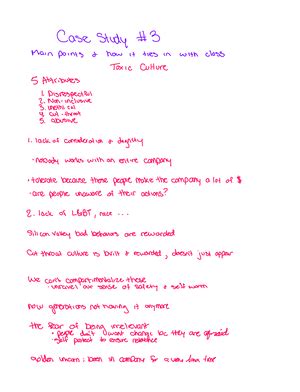 Case Study #3
Main points & how it ties in with class
Toxic Culture
5 Attributes
1. Disrespectful
2. Non-inclusive
3. unethical
4. Cut-throat
5. abusive
1. lack of consideration & dignity
· nobody works with an entire company
· tolerate because these people make the company a lot of $
· are people unaware of their actions?
2. lack of LGBT, race ...
Silicon valley bad behaviors are rewarded
Cut throat culture is built & rewarded, doesn't just appear
We can't compartmentalize these
· unravel our sense of safety & self worth
new generations not having it anymore
the fear of being irrelevant
· people don't want change bc they are afraid
· self protect to ensure
golden unicorn: been in company for a very long time